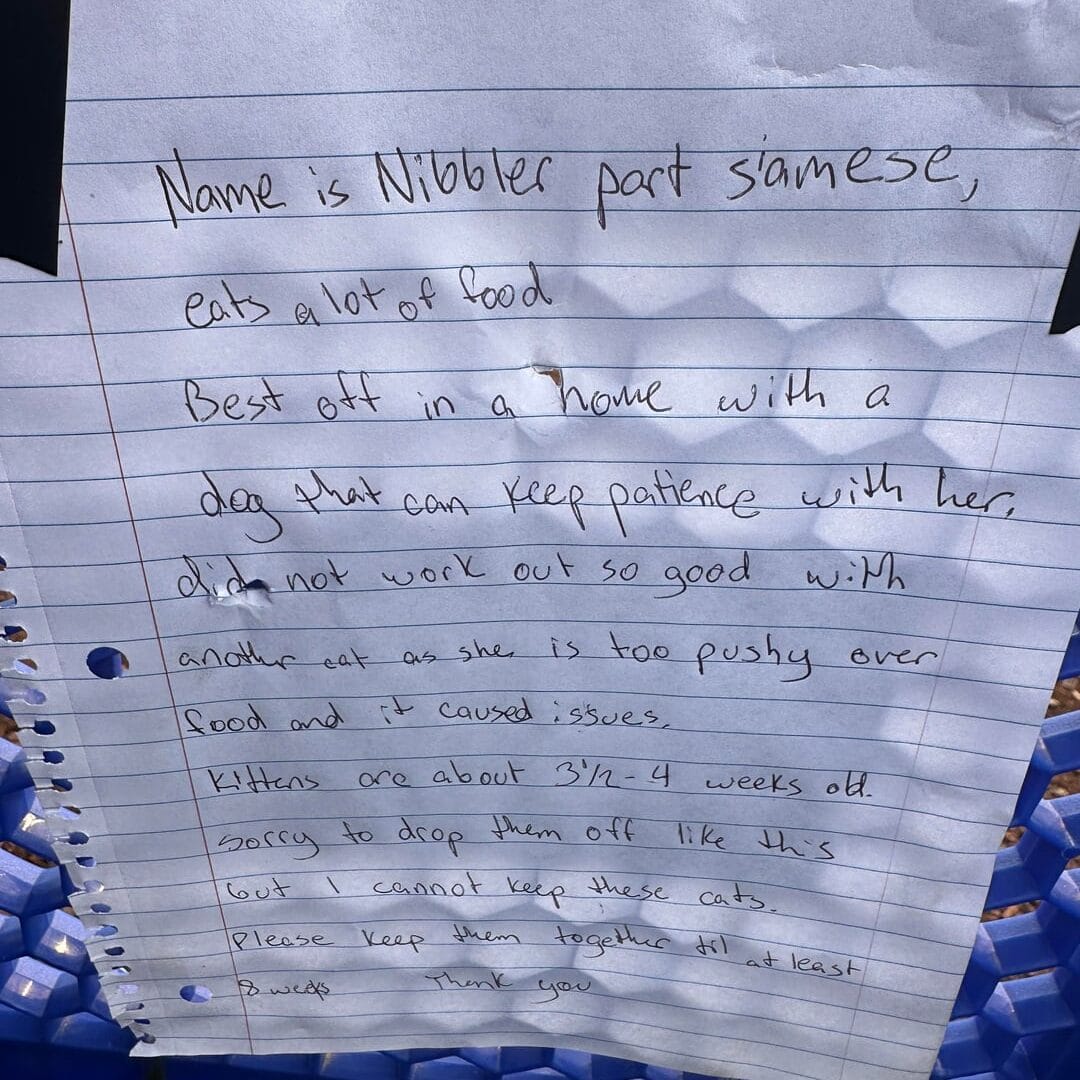 Name is Nibbler part siamese,
eats a lot of food
Best off in a home with a
dog that can keep patience with her.
did not work out so good with
another cat as she is too pushy over
food and it caused issues.
Kittens are about 3 1/2 - 4 weeks old.
sorry to drop them off like this
but I cannot keep these cats.
Please keep them together til at least
8 weeks Thank you